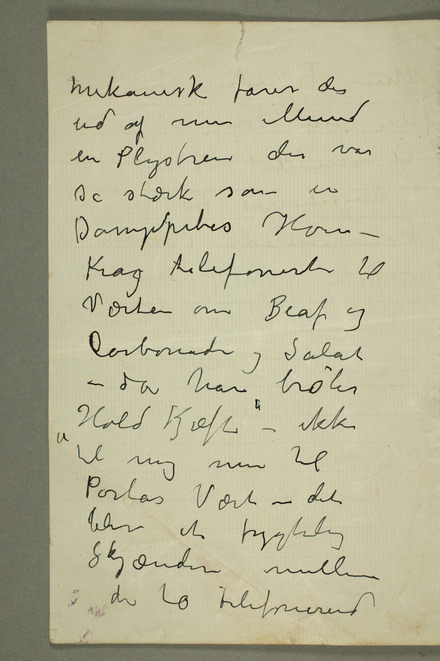 mekanisk farer der
ud af min Mund
en Plystren der var
så stærk som en
Dampfpibes Horn –
Krag telefonerte til
Værten om Beaf og
Carbonade og Salat
– da han brøler
Hold Kjæft" – ikke
"til mig men til
Portas Vært – det
blev et frygtelig
Skjænderi mellem
de to telefonerend